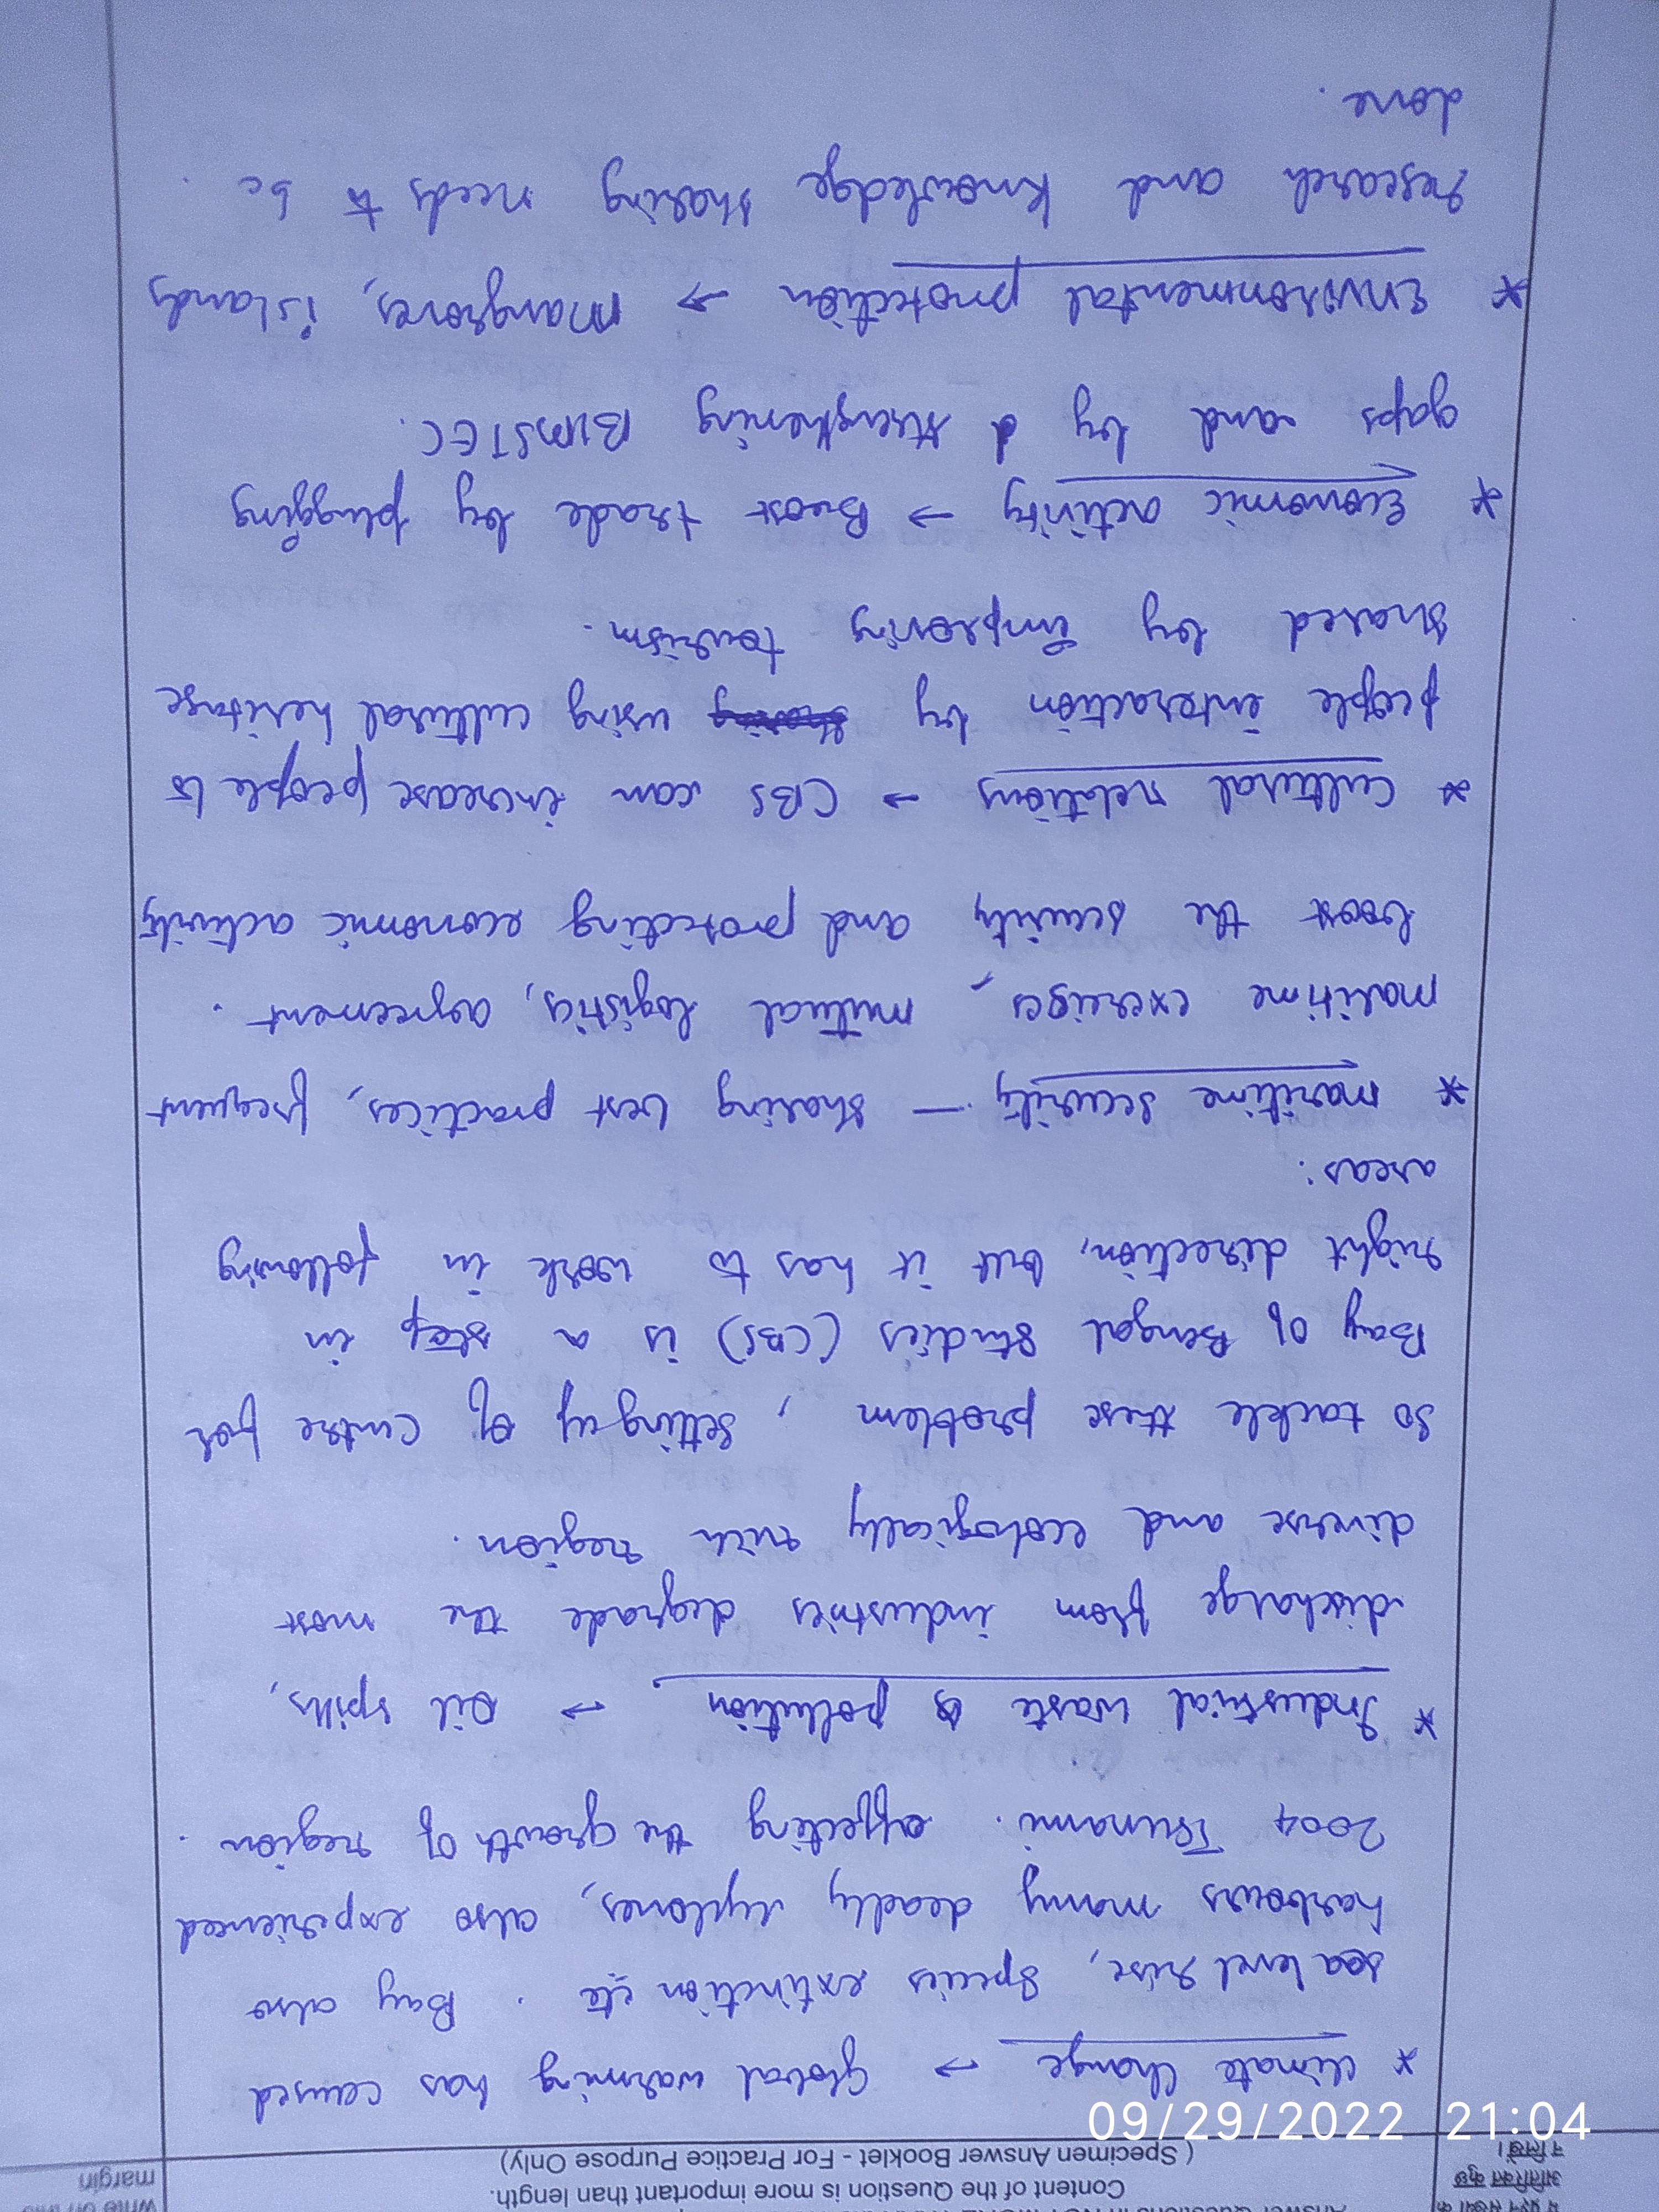 Content of the Question is more important than length.
( Specimen Answer Booklet - For Practice Purpose Only)
margin
09/29/2022 21:04
* Climate change → global warming has caused
sea level rise, species extinction etc. Bay also
harbours many deadly cyclones, also experienced
2004 Tsunami. affecting the growth of region.
* Industrial waste & pollution → Oil spills,
discharge from industries degrade the most
diverse and ecologically rich region.
So tackle these problem, setting up of centre for
Bay of Bengal Studies (CBS) is a step in
right direction, but it has to work in following
areas:
* maritime security — sharing best practices, frequent
maritime exercises, mutual logistics, agreement.
boost the security and protecting economic activity
* Cultural relations → CBS can increase people to
people interaction by using cultural heritage
shared by improving tourism.
* Economic activity → Boost trade by plugging
gaps and by strengthening BIMSTEC.
* Environmental protection → mangroves, islands
research and knowledge sharing needs to be
done.